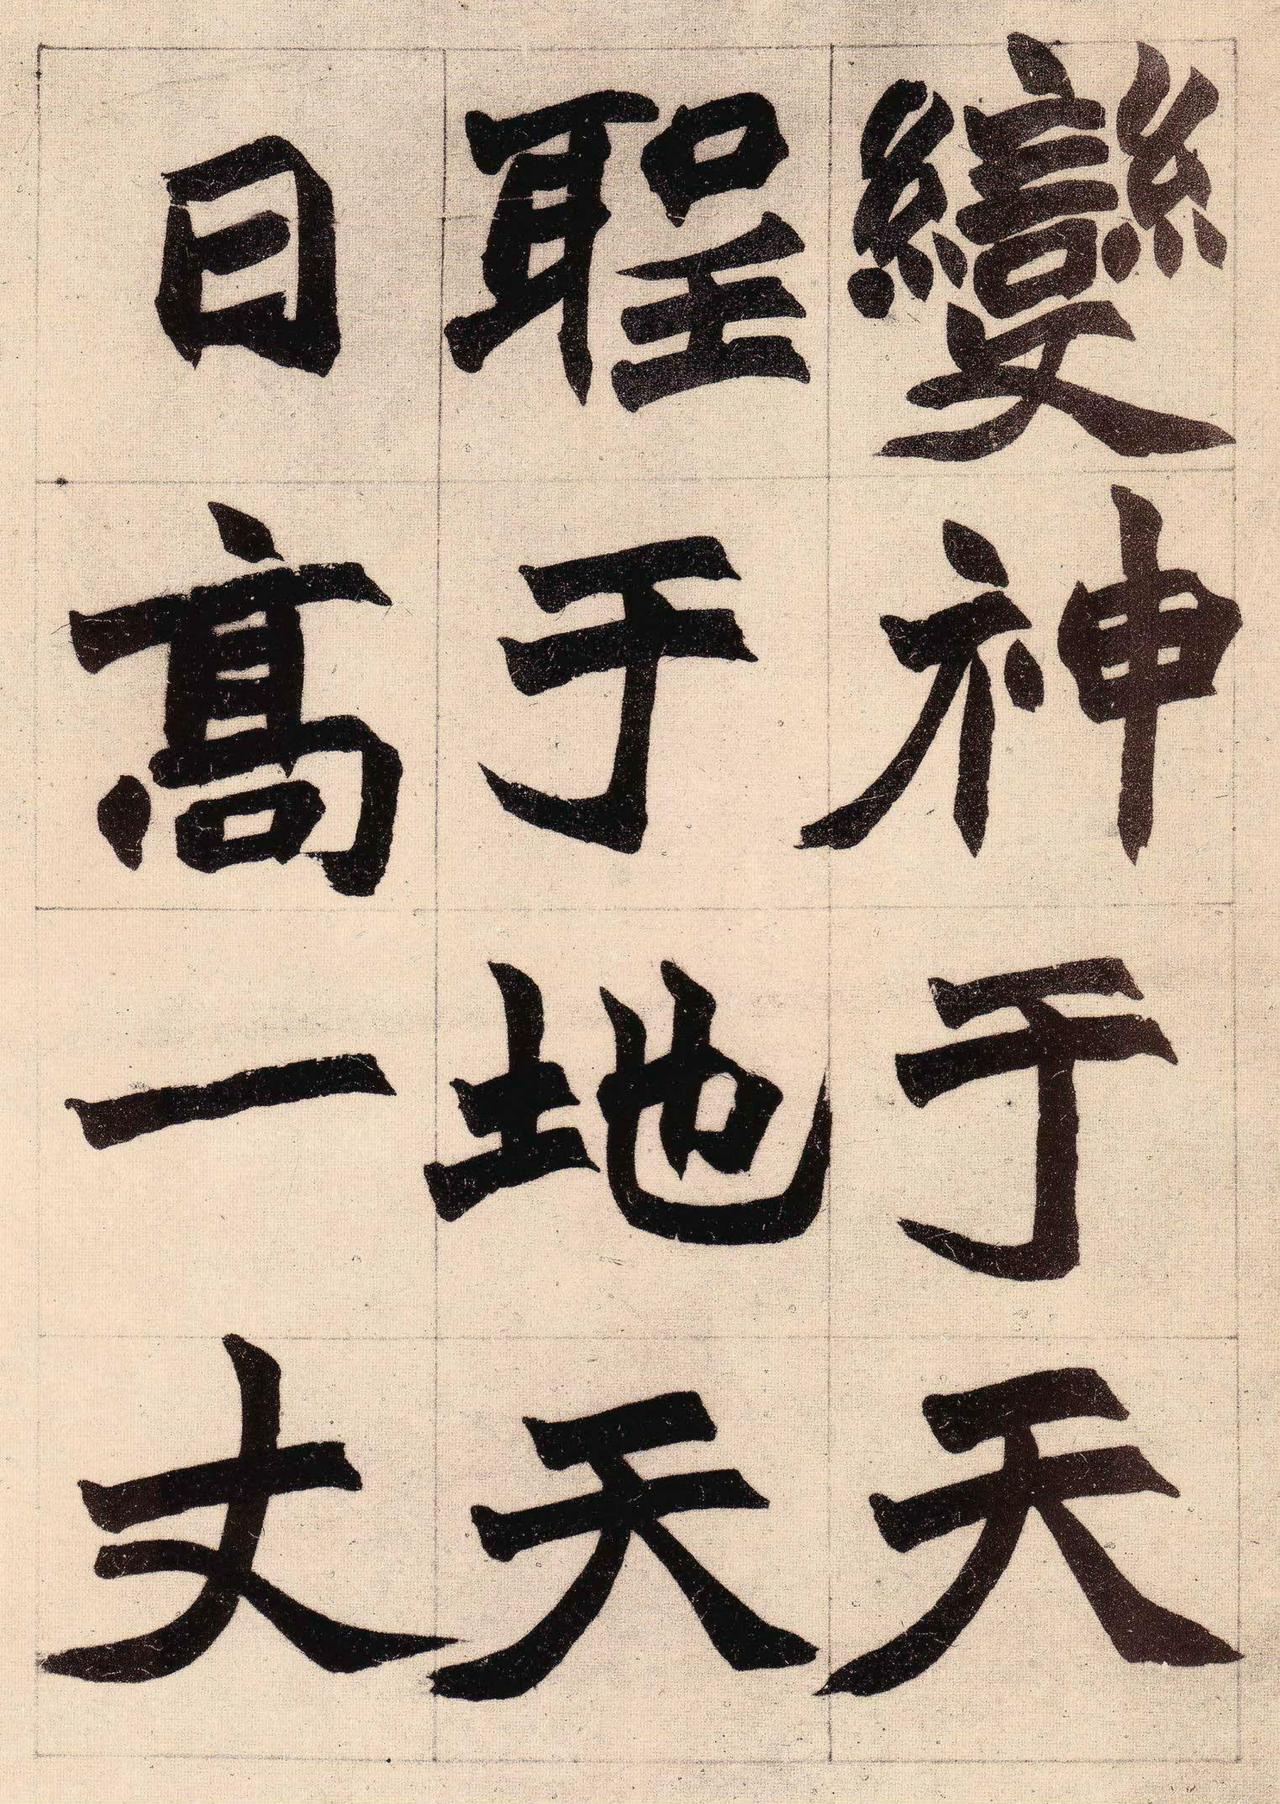 變神于天
聖于地天
日高一丈